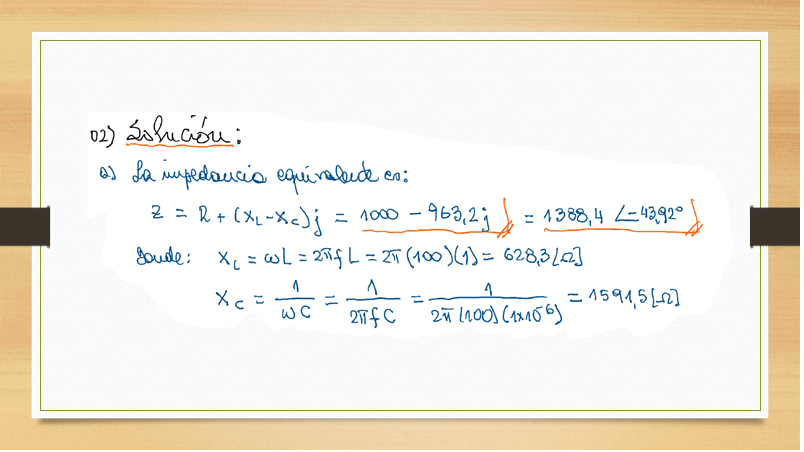 02) Solución:
a) La impedancia equivalente es:
Z = R + (X_L - X_C)j = 1000 - 963,2j = 1388,4 ∠-43,92°
donde: X_L = ωL = 2πfL = 2π(100)(1) = 628,3[Ω]
X_C = 1/ωC = 1/2πfC = 1/2π(100)(1x10^-6) = 1591,5[Ω]